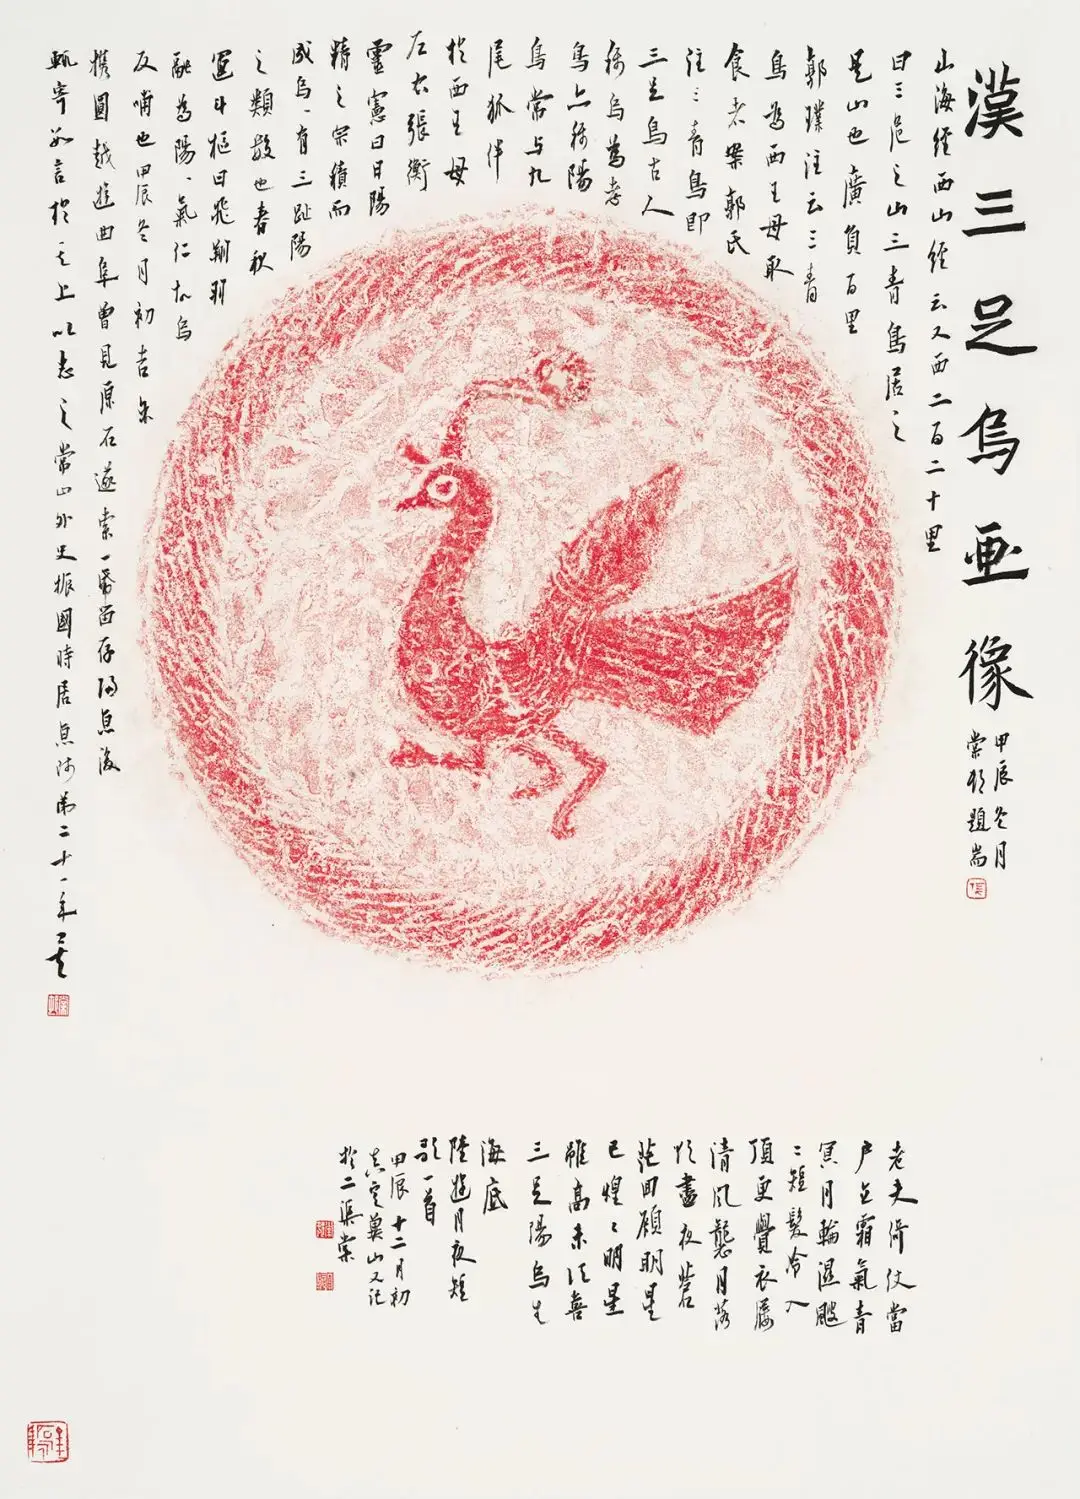 漢三足烏画像
甲辰冬月
棠邨題耑
山海經西山經云又西二百二十里
曰三危之山三青鳥居之
是山也廣員百里
郭璞注云三青
鳥為西王母取
食者案郭氏
注三青鳥即
三足烏古人
稱烏為孝
鳥亦稱陽
鳥常与九
尾狐伴
於西王母
左右張衡
靈憲曰日陽
精之宗積而
成烏烏有三趾陽
之類數也春秋
運斗樞曰飛翔羽
翮為陽陽氣仁故烏
反哺也甲辰冬月初吉余
携圓越遊曲阜曾見原石遂索一帋留存
輒寄數言於其上以志之常山外史振國時居京師第二十一年矣
老夫倚仗當
户立霜氣青
冥月輪濕颼
颼短髮冷入
頂更覺衣屨
清風襲月落
燈盡夜蒼
茫回顧明星
已煌煌明星
雖高未須喜
三足陽烏生
海底
陸遊月夜短
歌一首
甲辰十二月初
真定冀山又記
於二渠棠